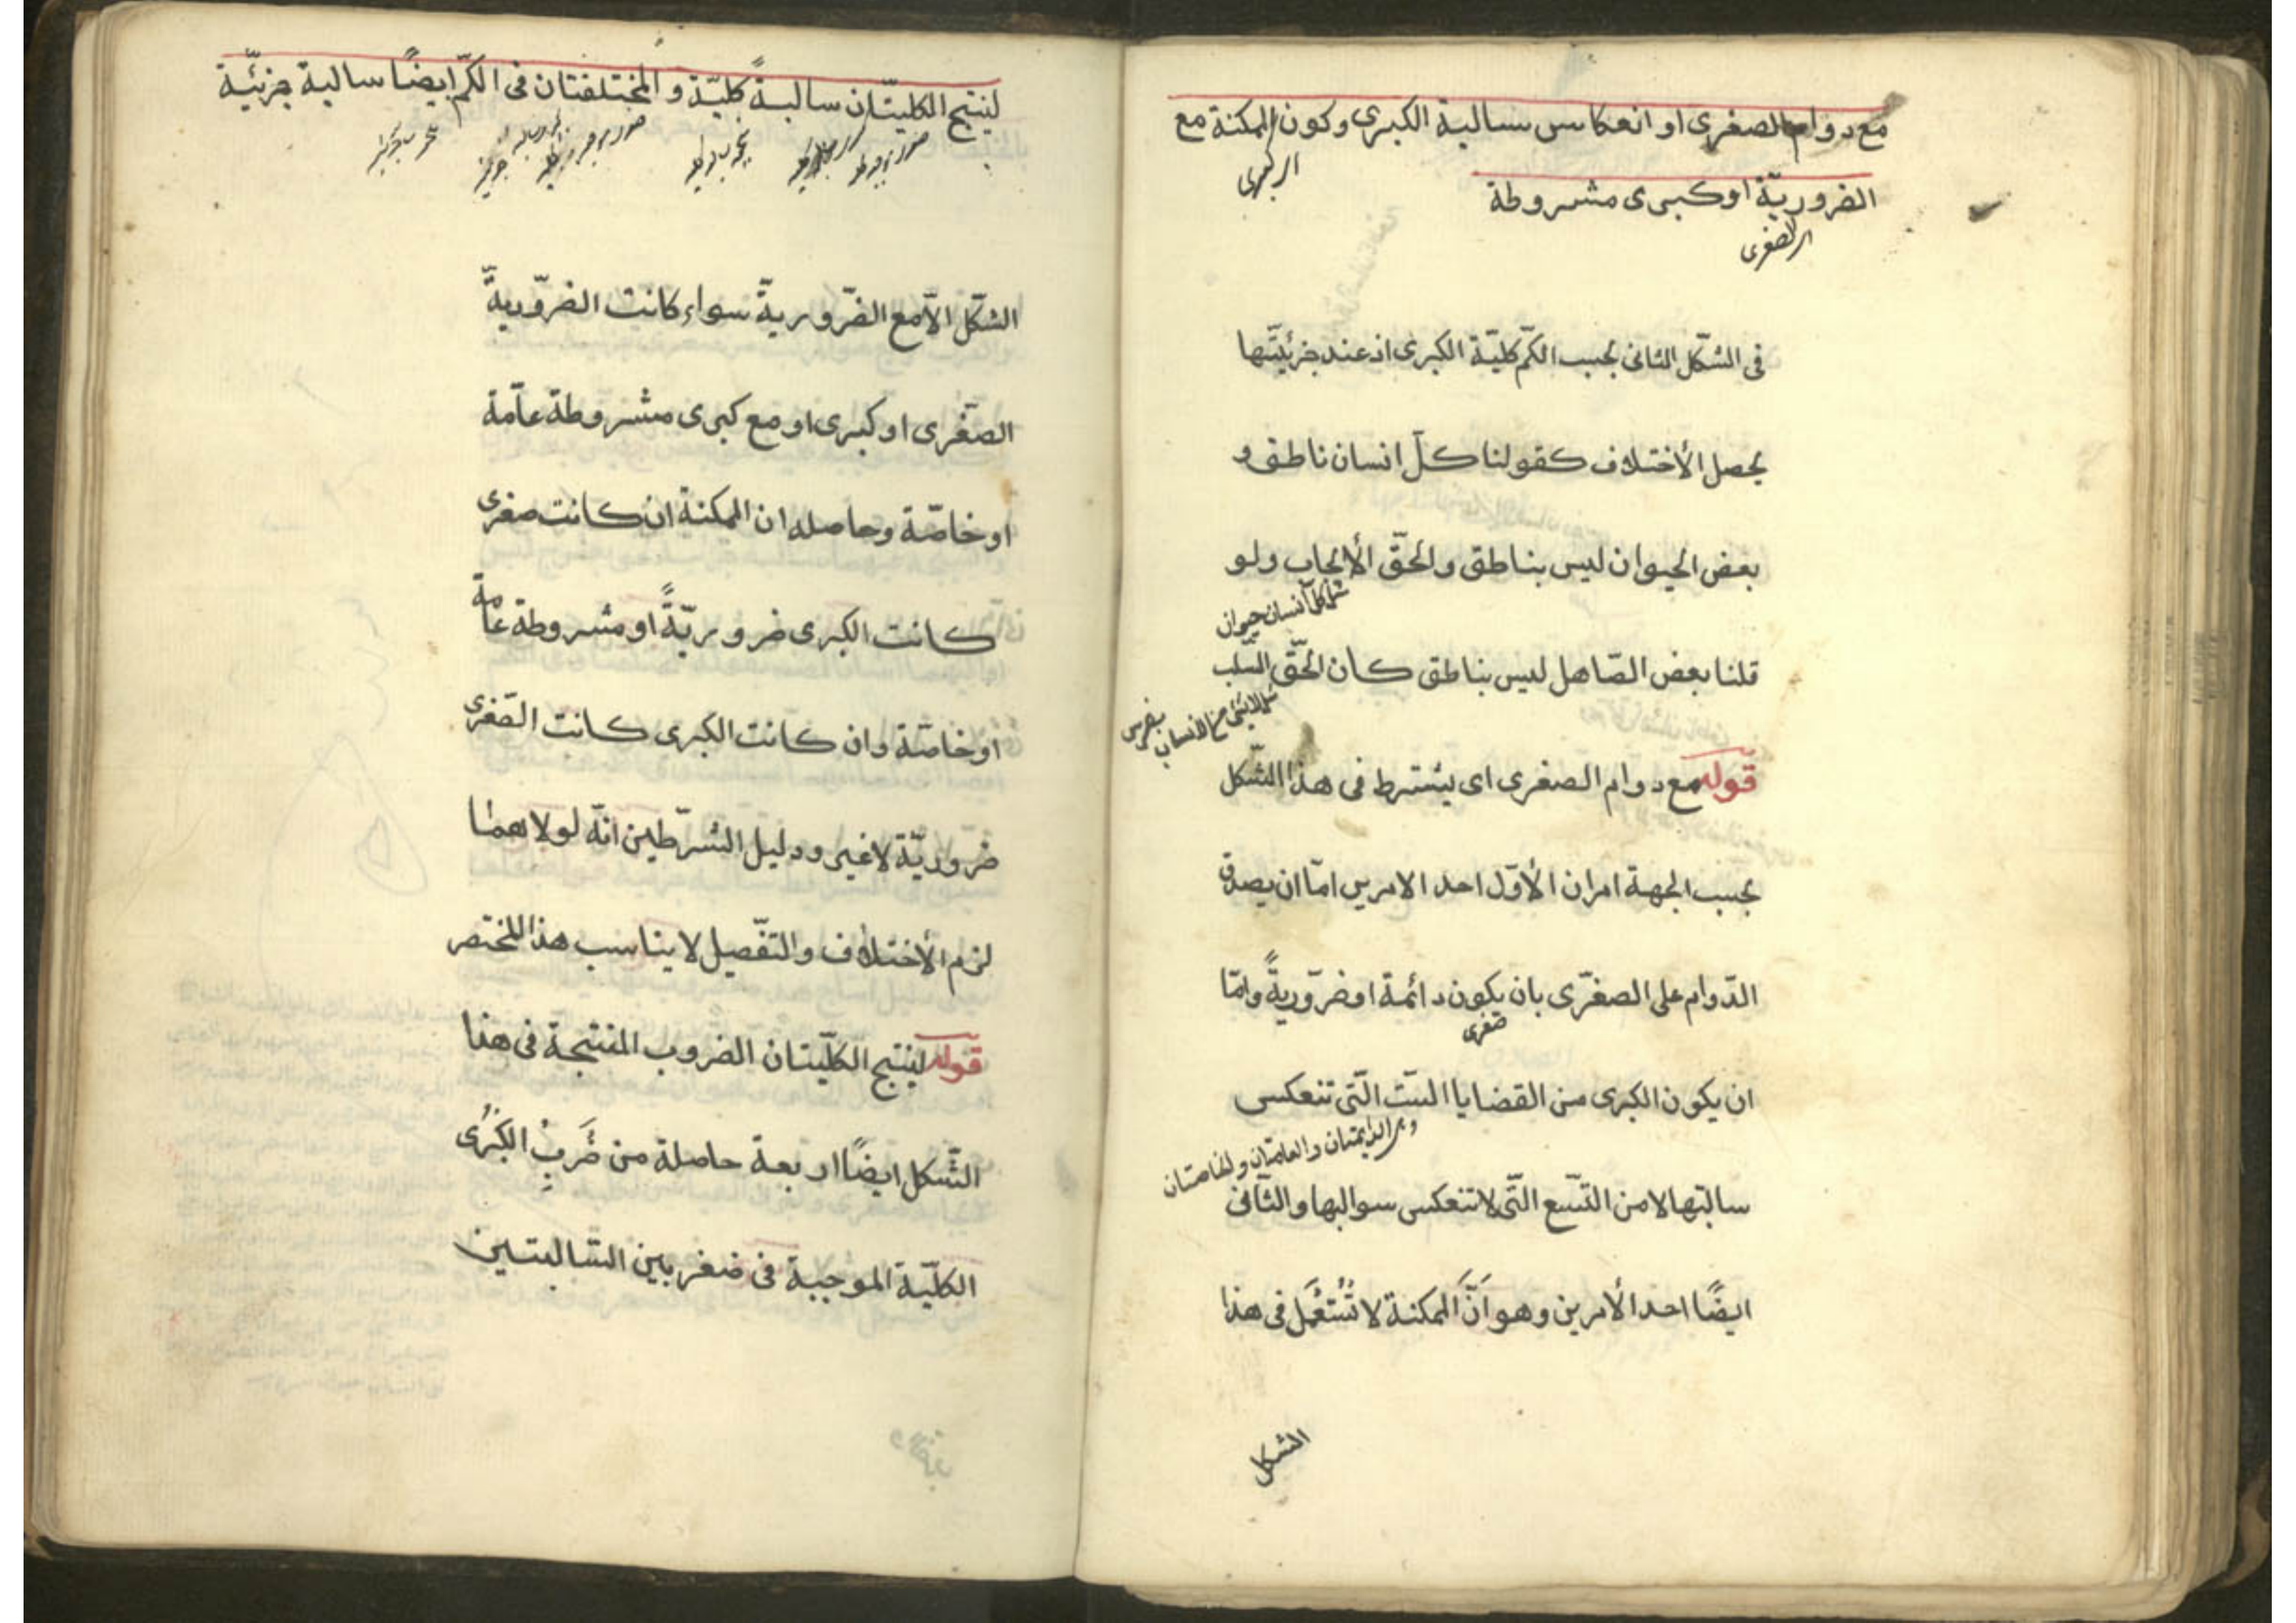 مع دوام الصغرى او انعكاس سالبة الكبرى وكون الممكنة مع
اى كبرى
الضروريّة او كبرى مشروطة
اى الصغرى
فى الشّكل الثانى بحسب الكمّ كليّة الكبرى اذ عند جزئيّتها
يحصل الأختلاف كقولنا كلّ انسان ناطق و
بعض الحيوان ليس بناطق والحقّ الأيجاب ولو
كل انسان حيوان
قلنا بعض الصّاهل ليس بناطق كان الحقّ السّلب
لا شئ من الانسان بفرس
قوله مع دوام الصغرى اى يشترط فى هذا الشّكل
بحسب الجهة امران الأوّل احد الامرين امّا ان يصدق
الدّوام على الصغرّى بان يكون دائمة او ضرّوريةً وامّا
صغرى
ان يكون الكبرى من القضايا السّت الّتى تنعكس
وهى الدائمتان والعامتان والخاصتان
سالبتها لا من التّسع التّى لا تنعكس سوالبها والثّانى
ايضًا احد الأمرين وهو انَّ الممكنة لا تُسْتَعْمَل فى هذا
الشكل
لينتج الكليّتان سالبةً كليّة والمختلفتان فى الكمّ ايضًا سالبة جزئيّة
الشّكل الاّ مع الضّروريةّ سواء كانت الضرّوريةّ
الصغّرى او كبرى او مع كبرى مشروطة عاّمة
او خاصّة وحاصله ان الممكنة ان كانت صغرى
كانت الكبرى ضروريّةً او مشروطة عامة
او خاصّة وان كانت الكبرى كانت الصّغرى
ضروريّة لا غير ودليل الشرّطين انّه لولاهما
لزم الأختلاف والتفّصيل لا يناسب هذا المختصر
قوله لينتج الكلّيتان الضروب المنتجة فى هذا
الشّكل ايضًا اربعة حاصلة من ضَربِ الكبْرى
الكلّيّة الموجبة فى صغريين السّالبتين